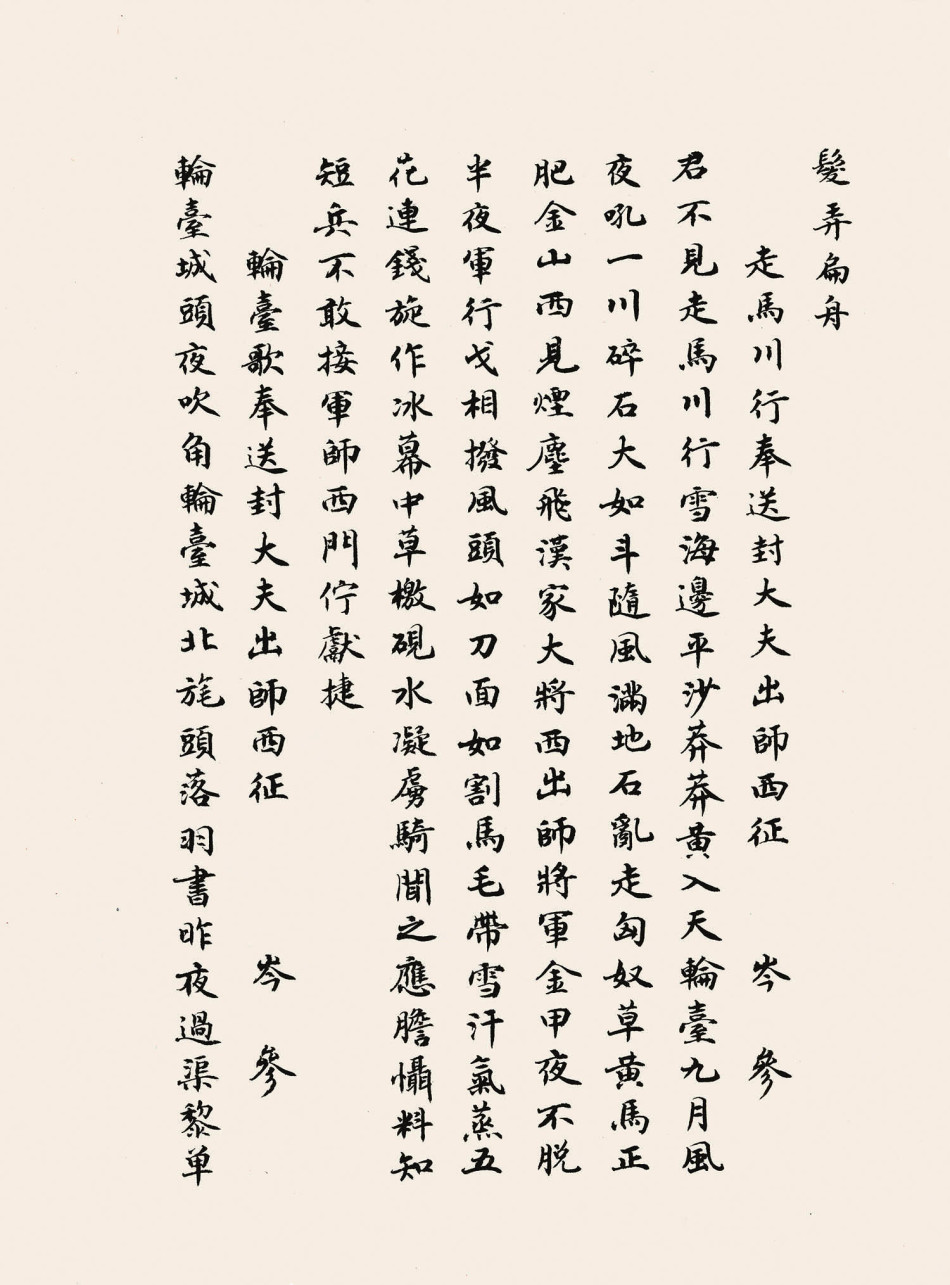 髮弄扁舟
走馬川行奉送封大夫出師西征 岑參
君不見走馬川行雪海邊平沙莽莽黃入天輪臺九月風
夜吼一川碎石大如斗隨風滿地石亂走匈奴草黃馬正
肥金山西見煙塵飛漢家大將西出師將軍金甲夜不脫
半夜軍行戈相撥風頭如刀面如割馬毛帶雪汗氣蒸五
花連錢旋作冰幕中草檄硯水凝虜騎聞之應膽懾料知
短兵不敢接軍師西門佇獻捷
輪臺歌奉送封大夫出師西征 岑參
輪臺城頭夜吹角輪臺城北旄頭落羽書昨夜過渠黎单